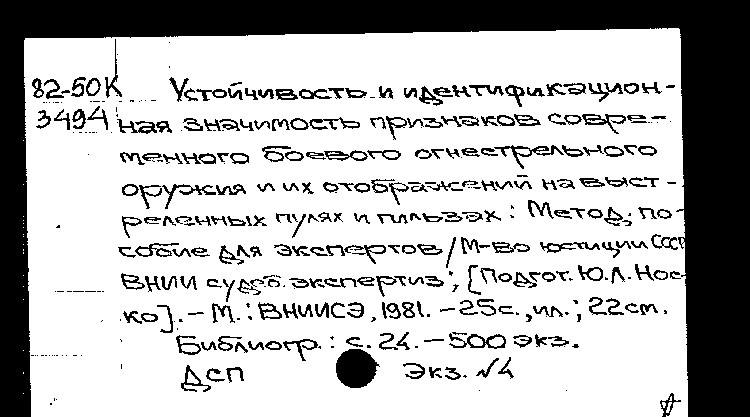 82-50К Устойчивость и идентификацион-
3494 ная значимость признаков совре-
менного боевого огнестрельного
оружия и их отображений на выст-
реленных пулях и гильзах: Метод. по-
собие для экспертов/М-во юстиции СССР
ВНИИ судеб. экспертиз; [Подгот. Ю.Л. Нос-
ко]. – М.: ВНИИСЭ, 1981. – 25с., ил.; 22см.
Библиогр.: с. 24. – 500 экз.
ДСП Экз. №4